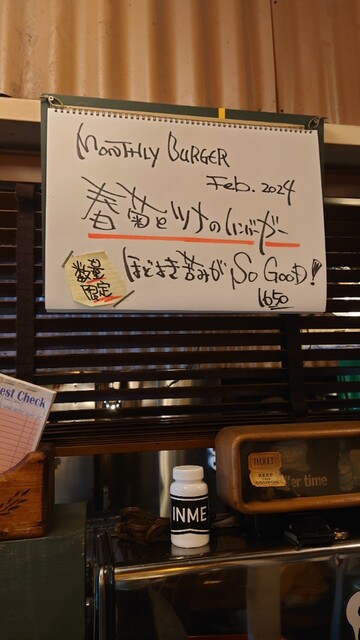 MONTHLY BURGER
Feb. 2024
春菊とツナの
ほどよき苦みが So GOOD!
1650
数量
限定
est Check
INME
TICKET
KEEP THE COUPON
er time